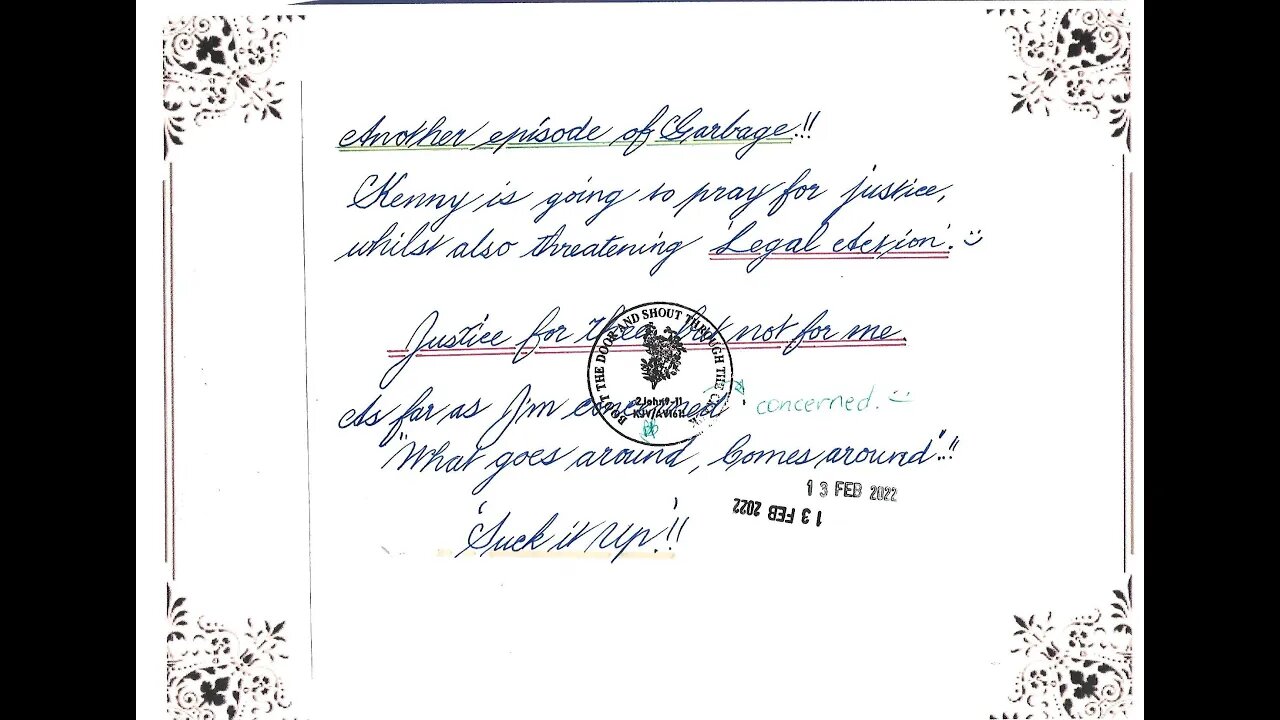 Another episode of Garbage.!!
Kenny is going to pray for justice,
whilst also threatening 'Legal Action'. :)
Justice for thee but not for me.
As far as I'm concerned * concerned. :)
"What goes around, Comes around".!!
'Suck it Up'.!!
BOOT THE DOOR AND SHOUT THROUGH THE
2John9-11
KJV/AV1611
13 FEB 2022
13 FEB 2022